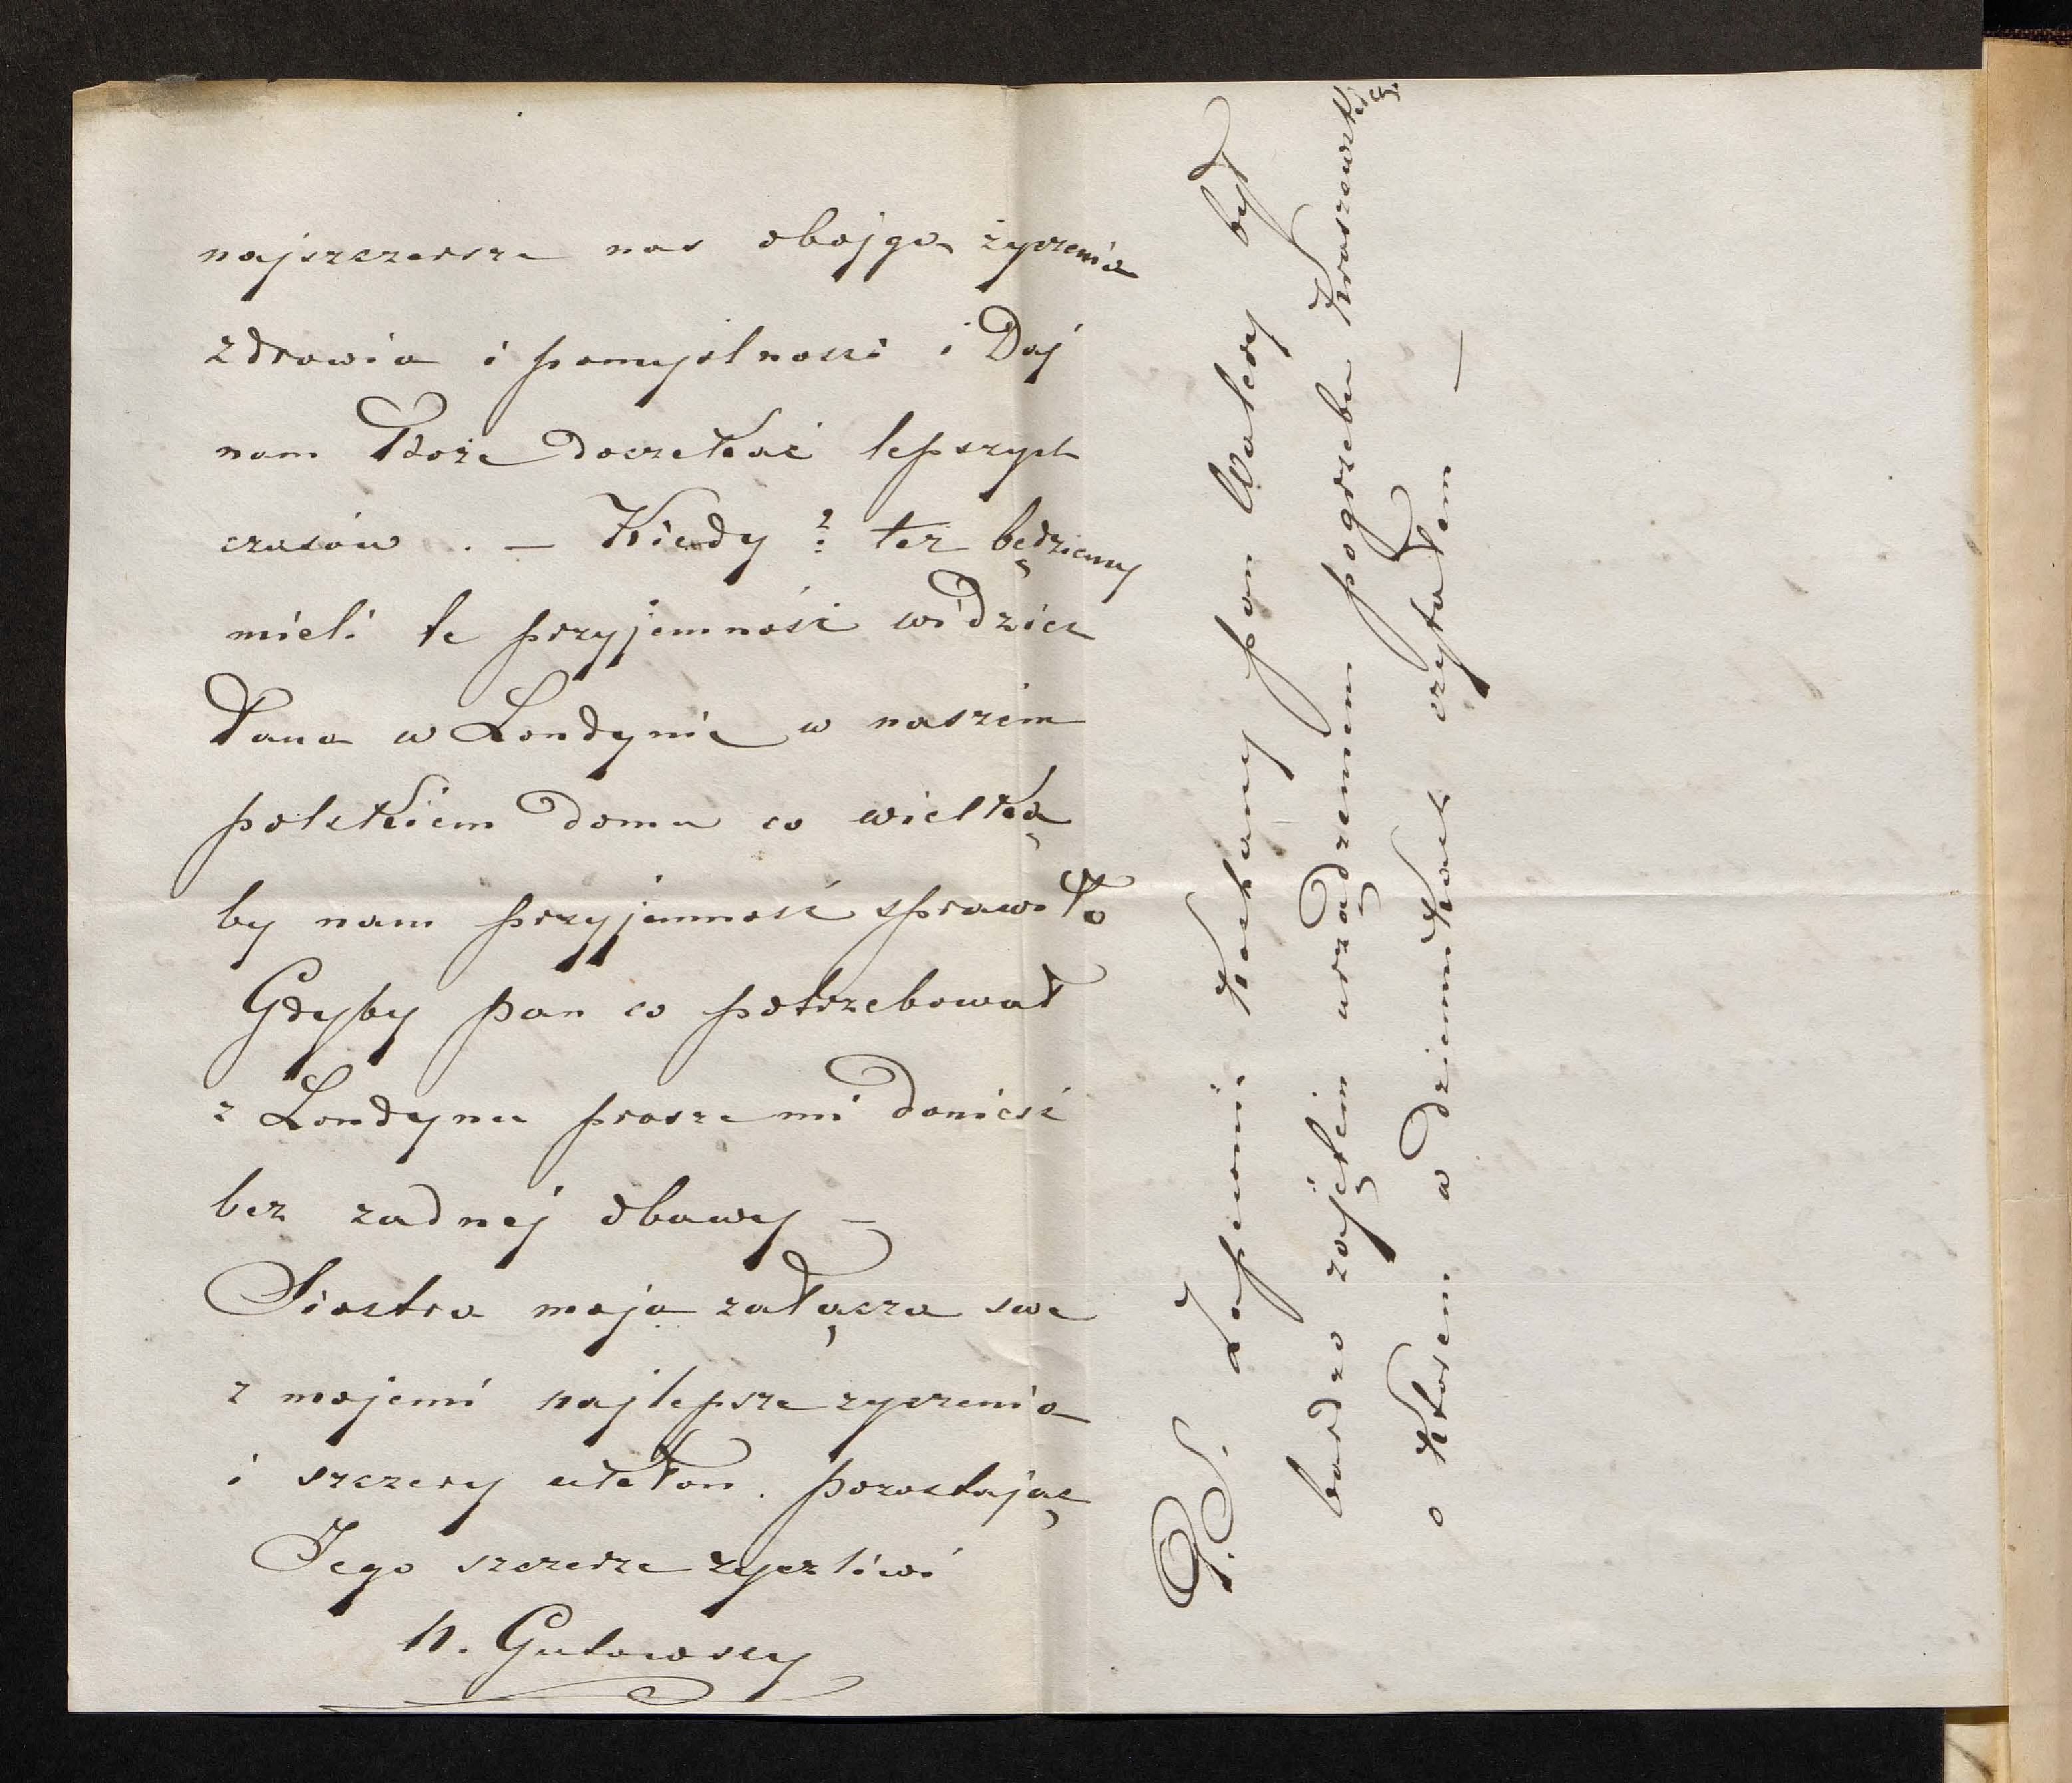 najszczersze nas obojga życzenia
zdrowia i pomyślnosci i Daj
nam Boże doczekać lepszych
czasów . — Kiedy ? tez będziemy
mieli te przyjemność widzieć
Pana w Londynie w naszem
polskiem domu co wielką
by nam przyjemność sprawiło
Gdyby pan co potrzebował
z Londynu prosze mi donieść
bez zadnej obawy —
Siostra moja załącza swe
z mojemi najlepsze zyczenia
i szczery ukłon . pozostając
Jego szczerze zyczliwi
N. Gutowscy
P.S. Zapewnie kochany pan Walery był
bardzo zajętem urządzeniem pogrzebu Kraszewskiego
o ktorem w dziennikach czytałem —